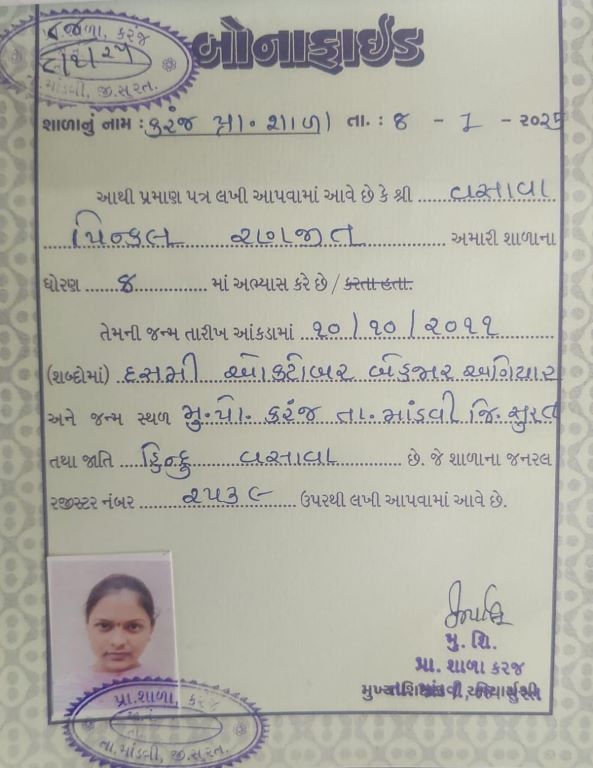 પ્રા.શાળા, કરંજ
તા.માંડવી, જી.સુરત.
બોનાફાઈડ
શાળાનું નામ : કરંજ પ્રા. શાળા તા. : ૪ - 1 - ૨૦૨૫
આથી પ્રમાણ પત્ર લખી આપવામાં આવે છે કે શ્રી વસાવા
પિન્કલ રણજીત અમારી શાળાના
ધોરણ ૪ માં અભ્યાસ કરે છે / કરતા હતા.
તેમની જન્મ તારીખ આંકડામાં ૧૦/૧૦/૨૦૧૧
(શબ્દોમાં) દસમી ઓકટોબર બેહજાર અગિયાર
અને જન્મ સ્થળ મુ.પો. કરંજ તા. માંડવી જિ. સુરત
તથા જાતિ હિન્દુ વસાવા છે. જે શાળાના જનરલ
રજીસ્ટર નંબર ૨૫૩૯ ઉપરથી લખી આપવામાં આવે છે.
મુ. શિ.
પ્રા. શાળા કરંજ
પ્રા.શાળા, કરંજ
તા.માંડવી, જી.સુરત.